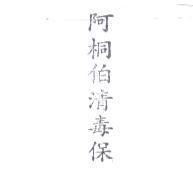 阿桐伯清毒保